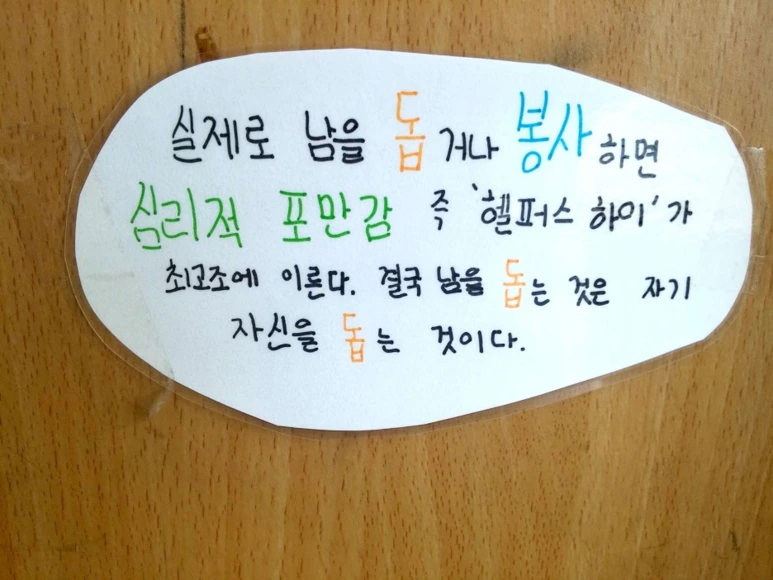 실제로 남을 돕거나 봉사하면
심리적 포만감 즉 '헬퍼스 하이'가
최고조에 이른다. 결국 남을 돕는 것은 자기
자신을 돕는 것이다.